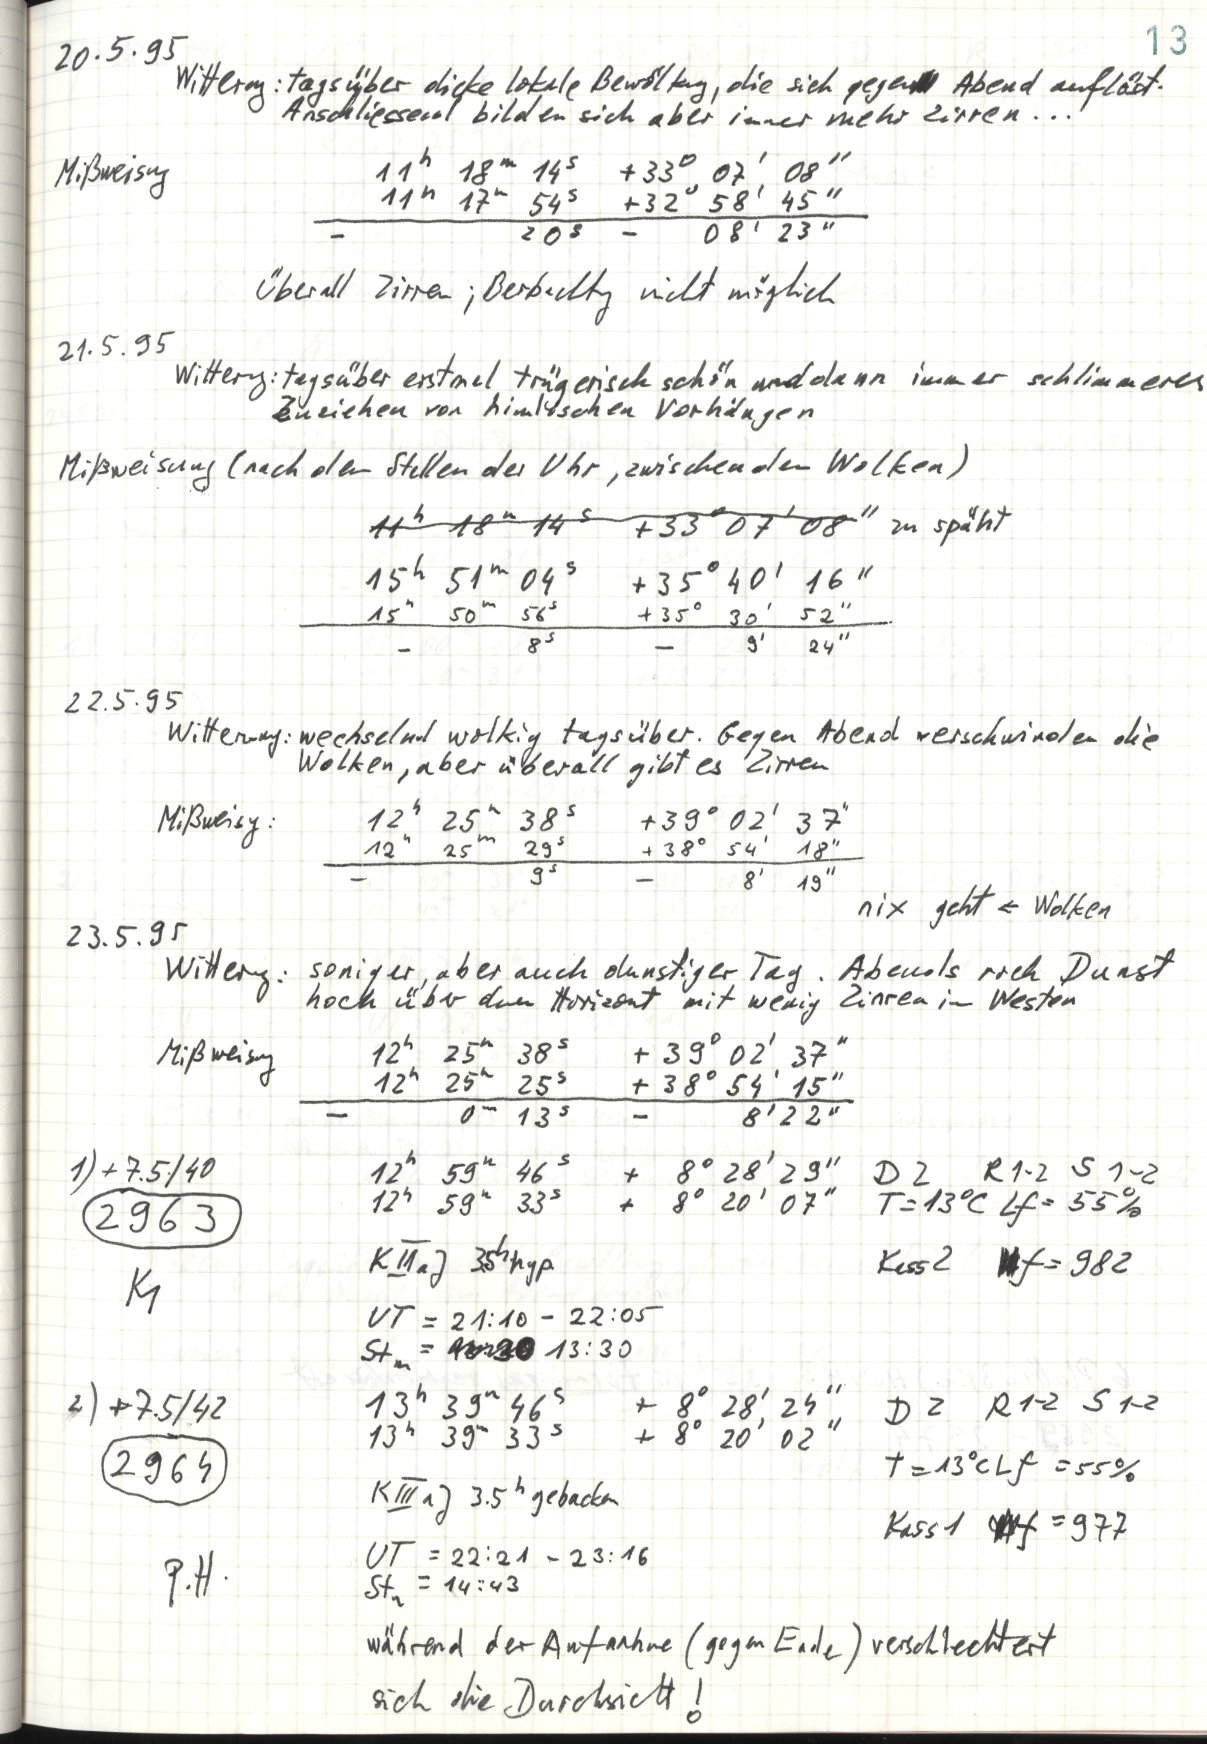 13
20.5.95
Witterung: tagsüber dicke lokale Bewölkung, die sich gegen Abend auflöst.
Anschliessend bilden sich aber immer mehr Zirren...
Mißweisung 11h 18m 14s +33° 07' 08"
11h 17m 54s +32° 58' 45"
- 20s - 08' 23"
Überall Zirren; Beobachtung nicht möglich
21.5.95
Witterung: tagsüber erstmal trügerisch schön und dann immer schlimmeres
Zuziehen von himlischen Vorhängen
Mißweisung (nach dem Stellen der Uhr, zwischen den Wolken)
11h 18m 14s +33° 07' 08" zu späht
15h 51m 04s +35° 40' 16"
15h 50m 56s +35° 30' 52"
- 8s - 9' 24"
22.5.95
Witterung: wechselnd wolkig tagsüber. Gegen Abend verschwinden die
Wolken, aber überall gibt es Zirren
Mißweisg: 12h 25m 38s +39° 02' 37"
12h 25m 29s +38° 54' 18"
- 9s - 8' 19"
nix geht ← Wolken
23.5.95
Witterung: soniger, aber auch dunstiger Tag. Abends noch Dunst
hoch über dem Horizont mit wenig Zirren im Westen
Mißweisung 12h 25m 38s +39° 02' 37"
12h 25m 25s +38° 54' 15"
- 0m 13s - 8' 22"
1) +7.5/40 12h 59m 46s + 8° 28' 29" D2 R1-2 S1-2
2963 12h 59m 33s + 8° 20' 07" T=13°C Lf=55%
KIIIaJ 3.5h hyp. Kass2 f=982
K1
UT = 21:10 - 22:05
Stm = 13:30
2) +7.5/42 13h 39m 46s + 8° 28' 24" D2 R1-2 S1-2
13h 39m 33s + 8° 20' 02"
2964 T=13°C Lf=55%
KIIIaJ 3.5h gebacken
Kass1 f=977
UT = 22:21 - 23:16
P.H.
Stm = 14:43
während der Aufnahme (gegen Ende) verschlechtert
sich die Durchsicht!